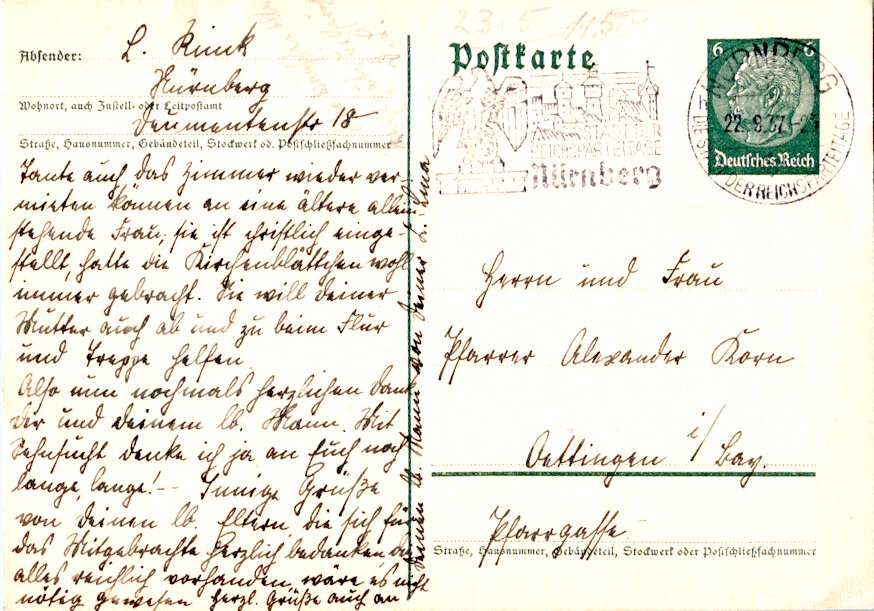 23.5 11.5
Absender: L. Rinck
Nürnberg
Wohnort, auch Zustell- oder Leitpostamt
Straße, Hausnummer, Gebäudeteil, Stockwerk od. Postschließfachnummer
Tante auch das Zimmer wieder ver-
mieten können an eine ältere allein-
stehende Frau; sie ist christlich einge-
stellt, hatte die Kirchenblättchen wohl
immer gebracht. Sie will deiner
Mutter auch ab und zu beim Flur
und Treppe helfen.
Also nun nochmals herzlichen Dank
Dir und deinem lb. Mann. Mit
Sehnsucht denke ich ja an Euch noch
lange, lange! -- Innige Grüße
von deinen lb. Eltern die sich für
das Mitgebrachte herzlich bedanken, da
alles reichlich vorhanden, wäre es nicht
nötig gewesen. Herzl. Grüße auch an
deinen lb. Mann von deiner L.
Postkarte
STADT DER
REICHSPARTEITAGE
Nürnberg
6 6
Deutsches Reich
NÜRNBERG
22.9.37
DIE STADT DER REICHSPARTEITAGE
Herrn und Frau
Pfarrer Alexander Korn
Oettingen i/Bay.
Pfarrgasse
Straße, Hausnummer, Gebäudeteil, Stockwerk oder Postschließfachnummer